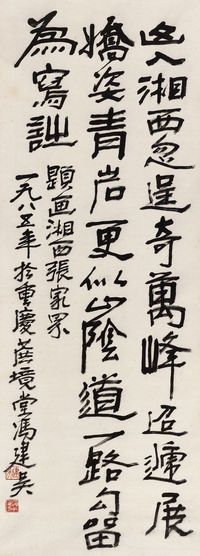 出入湘西忽逞奇萬峰迢遞展
嬌姿青岩更似山陰道一路勾留
為寫詩
題画湘西張家界
一九八五年於重慶蔗境堂馮建吴